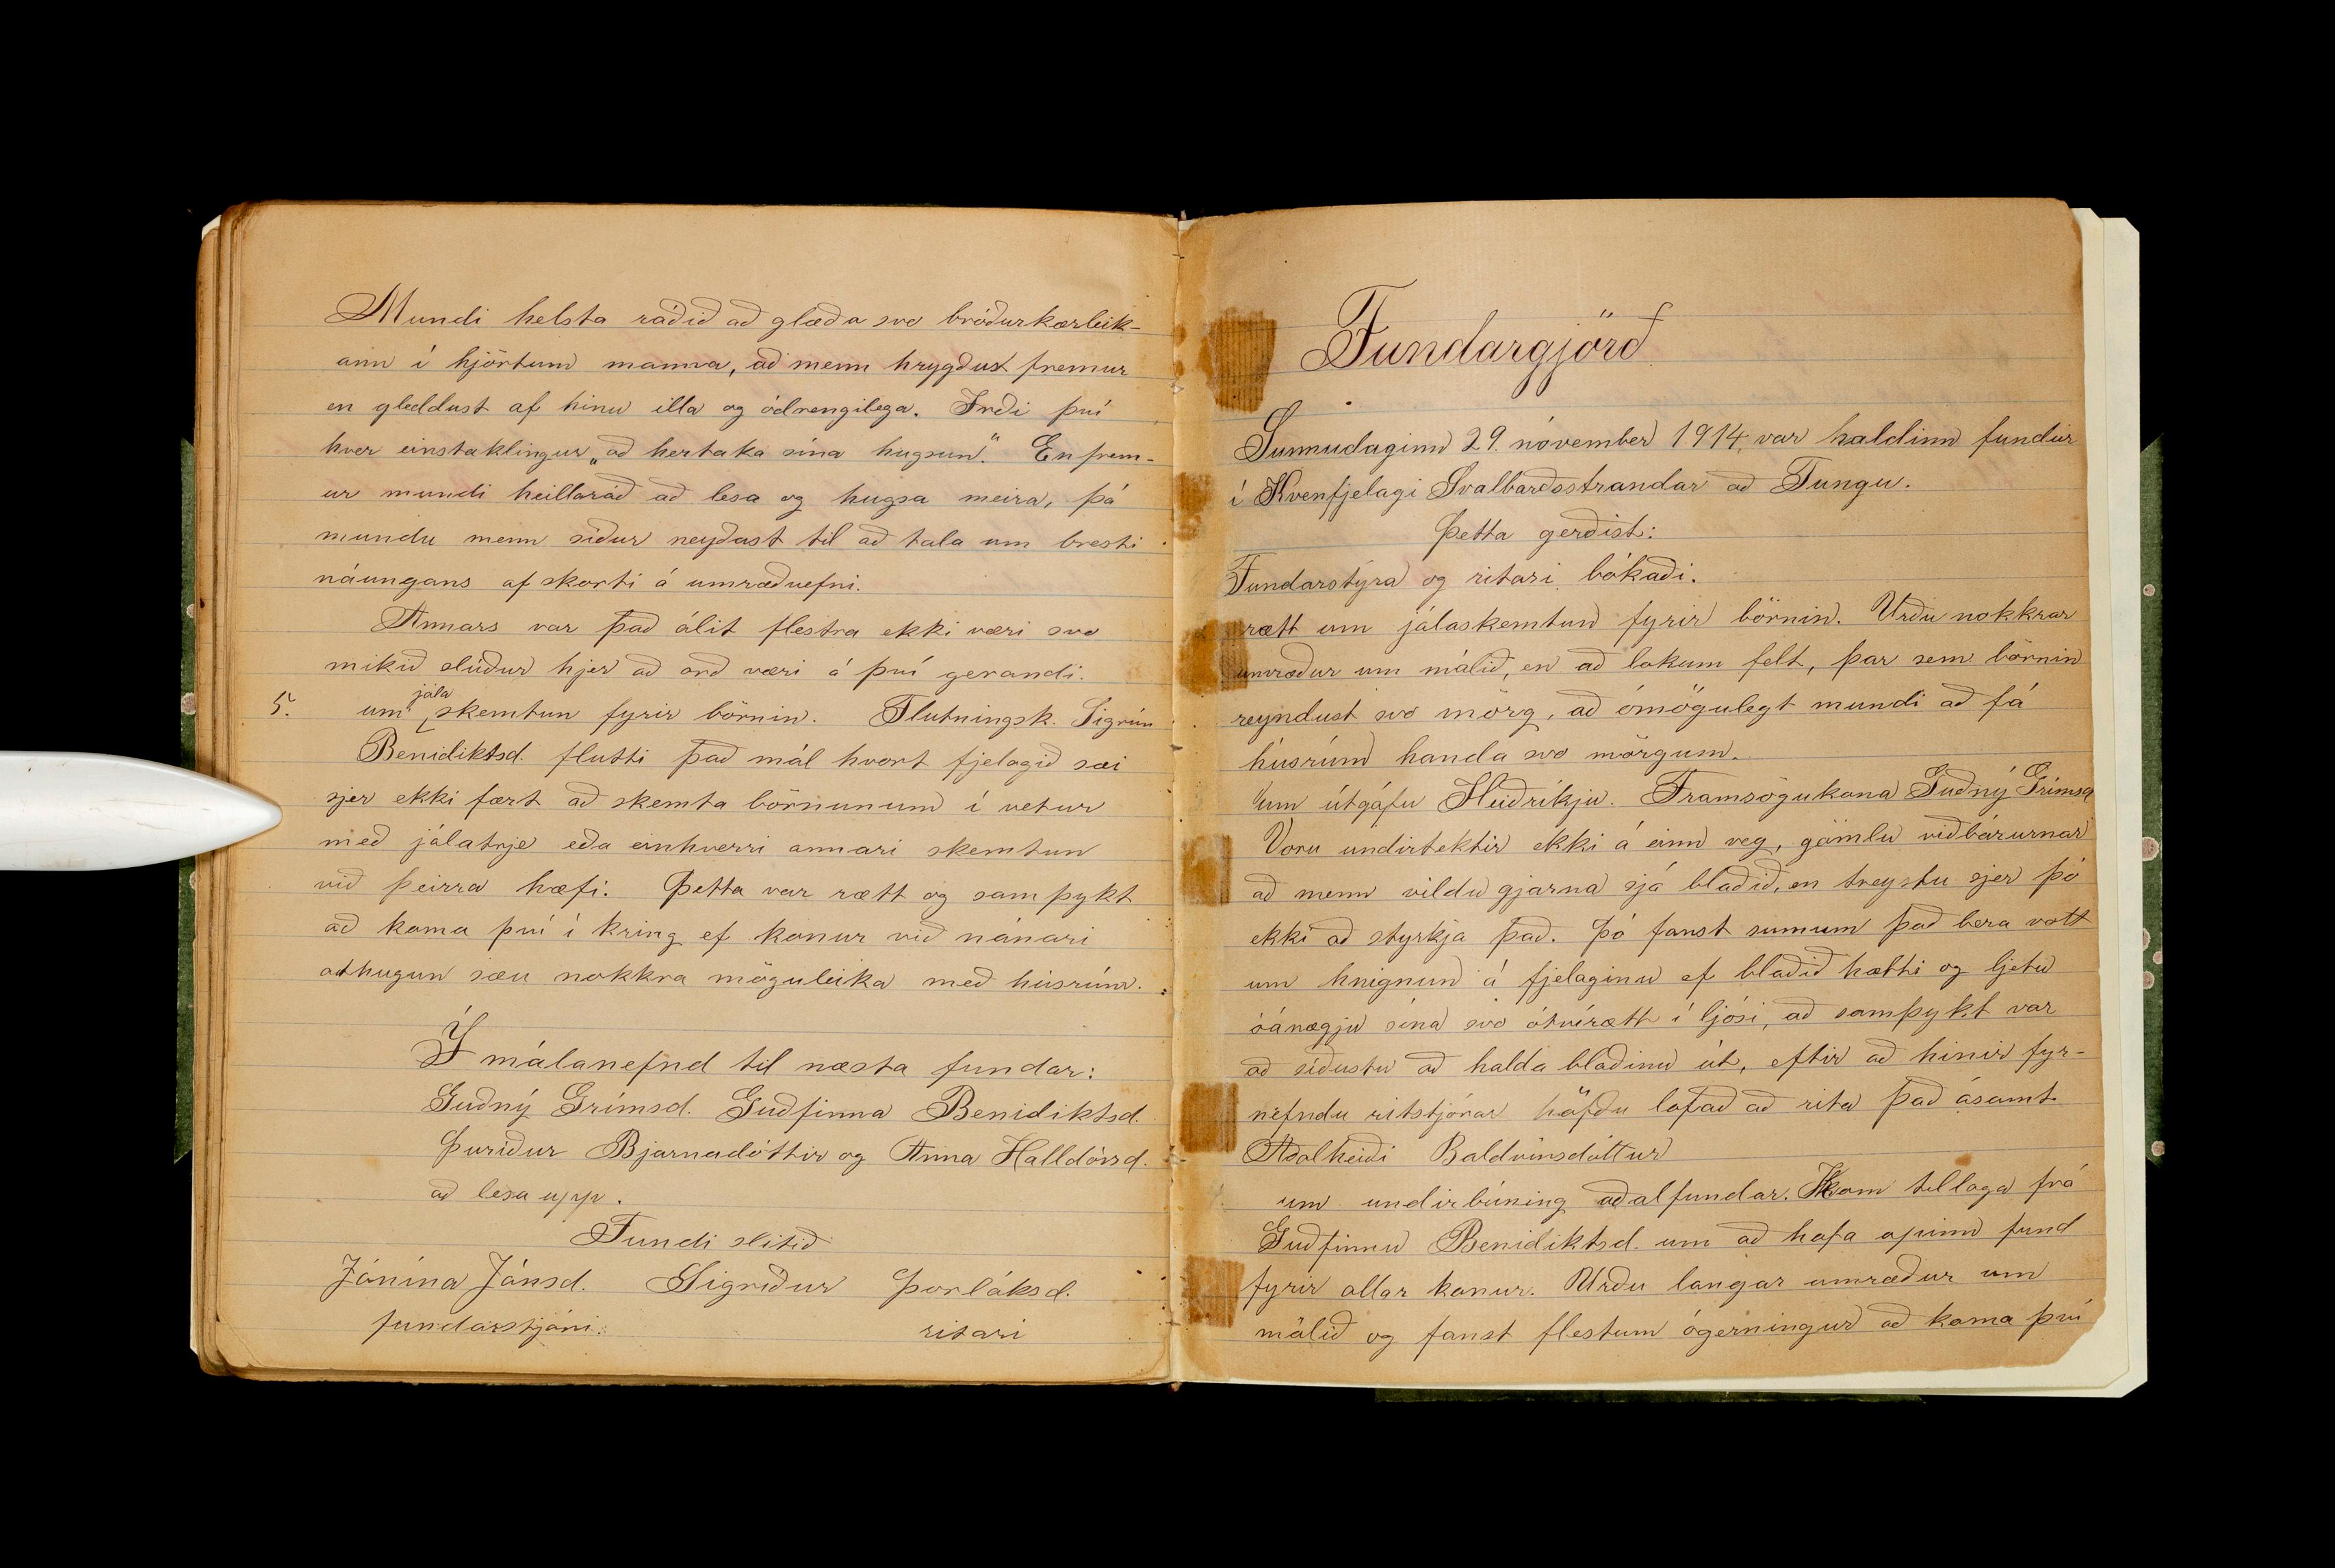 Mundi helsta ráðið að glæða svo bróðurkærleik-
ann í hjörtum manna, að menn hrygðust fremur
en gleddust af hinu illa og ódrengilega. Irði því
hver einstaklingur „að hertaka sína hugsun“. En frem-
ur mundi heillaráð að lesa og hugsa meira, þá
mundu menn síður neyðast til að tala um bresti
náungans af skorti á umræðuefni.
Annars var það álit flestra ekki væri svo
mikið slúður hjer að orð væri á því gerandi.
5. um jóla skemtun fyrir börnin. Flutningsk. Sigrún
Benidiktsd. flutti það mál hvort fjelagið sæi
sjer ekki fært að skemta börnunum í vetur
með jólatrje eða einhverri annari skemtun
við þeirra hæfi. Þetta var rætt og samþykt
að koma því í kring ef konur við nánari
athugun sæu nokkra möguleika með húsrúm.
Í málanefnd til næsta fundar:
Guðný Grímsd. Guðfinna Benidiktsd.
Þuríður Bjarnadóttir og Anna Halldórsd.
að lesa upp.
Fundi slitið
Jónína Jónsd. Sigríður Þorláksd.
fundarstjóri. ritari
Fundargjörð
Sunnudaginn 29. nóvember 1914, var haldinn fundur
í Kvenfjelagi Svalbarðsstrandar að Tungu.
Þetta gerðist:
Fundarstýra og ritari bókaði.
rætt um jólaskemtun fyrir börnin. Urðu nokkrar
umræður um málið, en að lokum felt, þar sem börnin
reyndust svo mörg, að ómögulegt mundi að fá
húsrúm handa svo mörgum.
um útgáfu Heiðríkju. Framsögukona Guðný Grímsd
Voru undirtektir ekki á einn veg, gömlu viðbárurnar
að menn vildu gjarna sjá blaðið, en treystu sjer þó
ekki að styrkja það. Þó fanst sumum það bera vott
um hnignun á fjelaginu ef blaðið hætti og ljetu
óánægju sína svo ótvírætt í ljósi, að samþykt var
að síðustu að halda blaðinu út, eftir að hinir fyr-
nefndu ritstjórar höfðu lofað að rita það ásamt
Aðalheiði Baldvinsdóttur
um undirbúning aðalfundar. Kom tillaga frá
Guðfinnu Benidiktsd. um að hafa opinn fund
fyrir allar konur. Urðu langar umræður um
málið og fanst flestum ógerningur að koma því